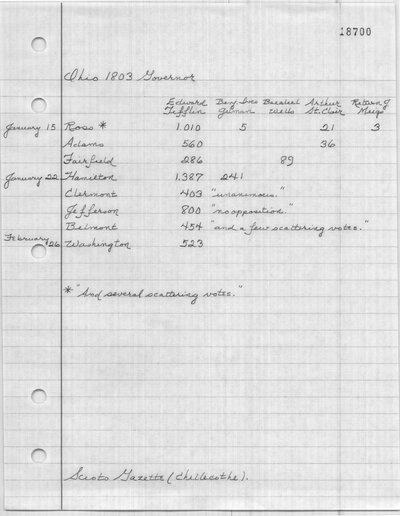 18700
Ohio 1803 Governor
Edward Tefflin Benj. Ives Gilman Bezaleel Wells Arthur St. Clair Return J Meigs
January 15 Ross * 1.010 5 21 3
Adams 560 36
Fairfield 286 89
January 22 Hamilton 1.387 241
Clermont 403 "unanimous."
Jefferson 800 "no opposition."
Belmont 454 "and a few scattering votes."
February 26 Washington 523
* "And several scattering votes."
Scioto Gazette (Chillecothe).